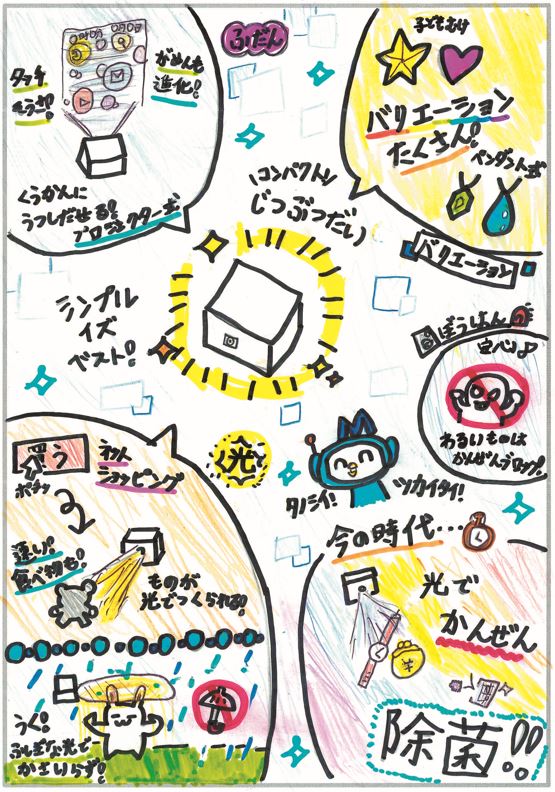 ふだん
タッチ
そうさ!
がめんも
進化!
くうかんに
うつしだせる!
プロジェクター式
子どもむけ
バリエーション
たくさん!
ペンダント式
バリエーション
\コンパクト/
じつぶつだい
シンプル
イズ
ベスト!
ぼうはん
安心♪
わるいものは
かんぜんブロック。
買う
ポチッ
ネット
ショッピング
速い!
食べ物も!
ものが
光でつくられる!
光で
タノシイ!
ツカイタイ!
今の時代…
光で
かんぜん
除菌!!
うく!
ふしぎな光で
かさいらず!